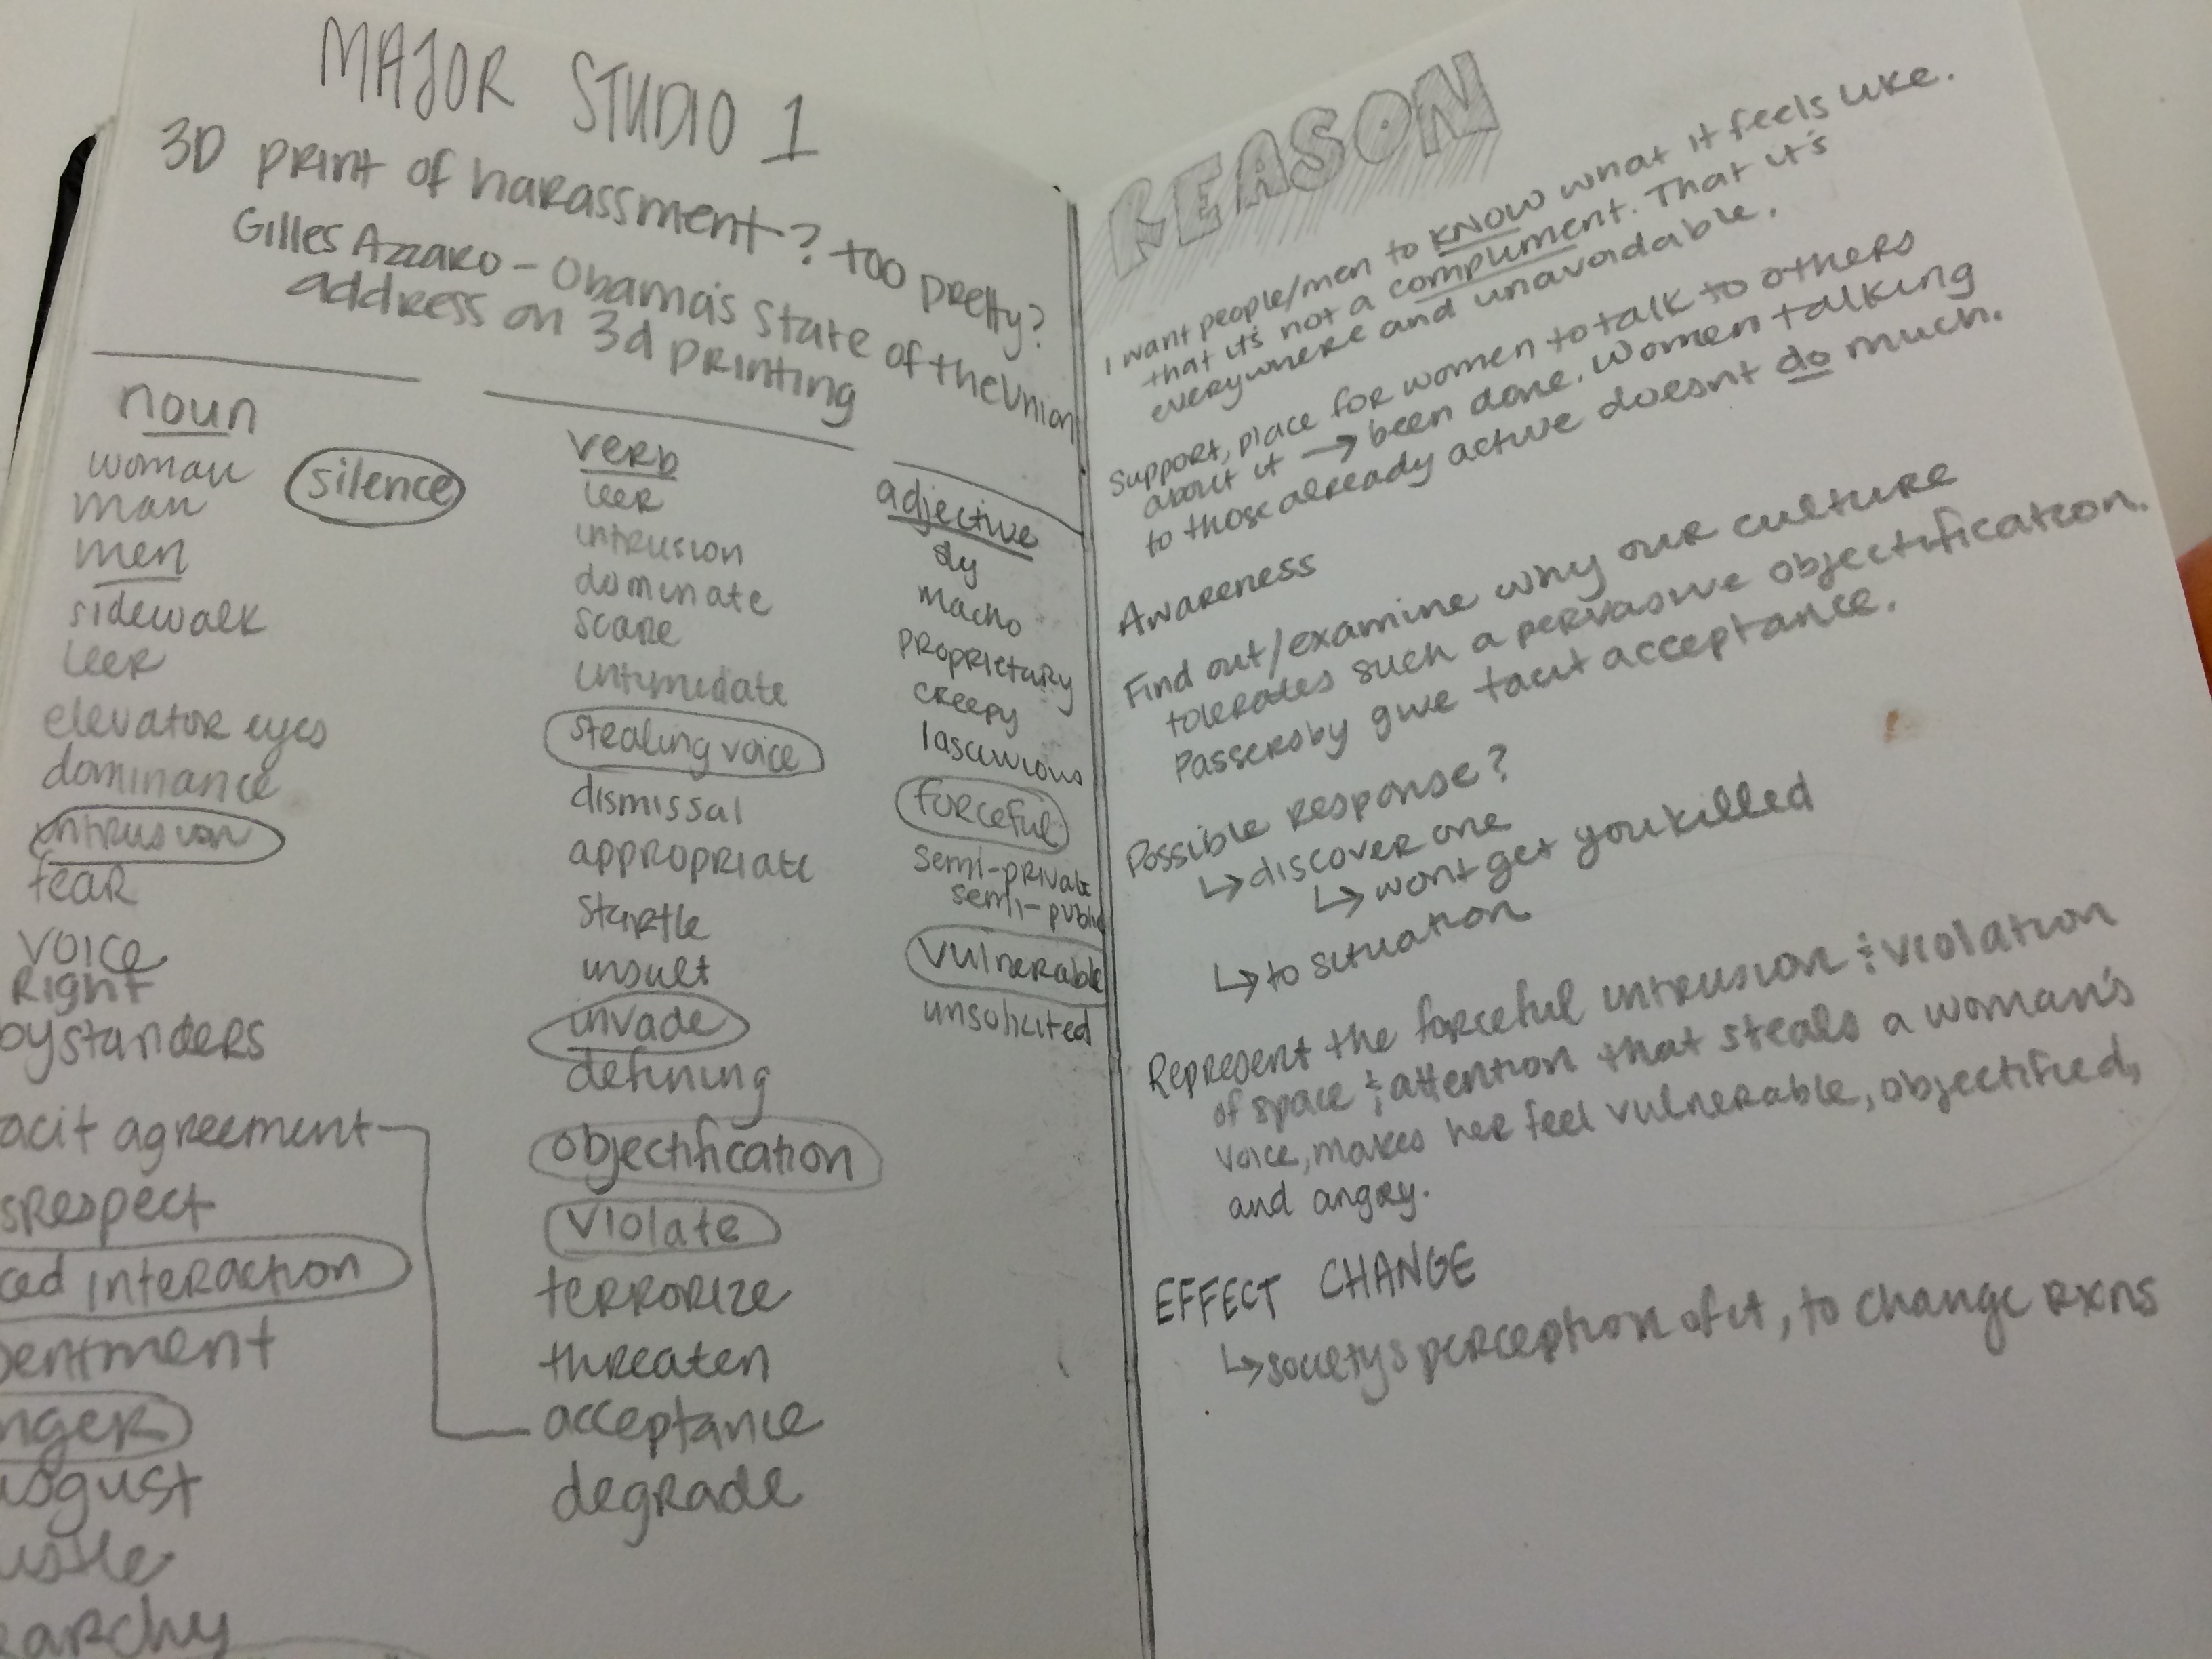 MAJOR STUDIO 1
3D print of harassment? too pretty?
Gilles Azzaro - Obama's State of the Union
address on 3d printing
noun
woman
silence
man
men
sidewalk
leer
elevator eyes
dominance
intrusion
fear
voice
Right
bystanders
acit agreement
srespect
ced interaction
entment
nger
sgust
stle
archy
verb
leer
intrusion
dominate
scare
intymidate
stealing voice
dismissal
appropriate
startle
insult
invade
defining
objectification
violate
terrorize
threaten
acceptance
degrade
adjective
sly
macho
proprietary
creepy
lascivious
forceful
semi-private
semi-public
vulnerable
unsolicited
REASON
I want people/men to KNOW what it feels like.
that it's not a compliment. That it's
everywhere and unavoidable.
Support, place for women to talk to others
about it → been done. Women talking
to those already active doesnt do much.
Awareness
Find out/examine why our culture
tolerates such a pervasive objectification.
Passersby give tacit acceptance.
Possible response?
↳ discover one
↳ wont get you killed
↳ to situation
Represent the forceful intrusion & violation
of space & attention that steals a woman's
voice, makes her feel vulnerable, objectified,
and angry.
EFFECT CHANGE
↳ societys perception of it, to change rxns